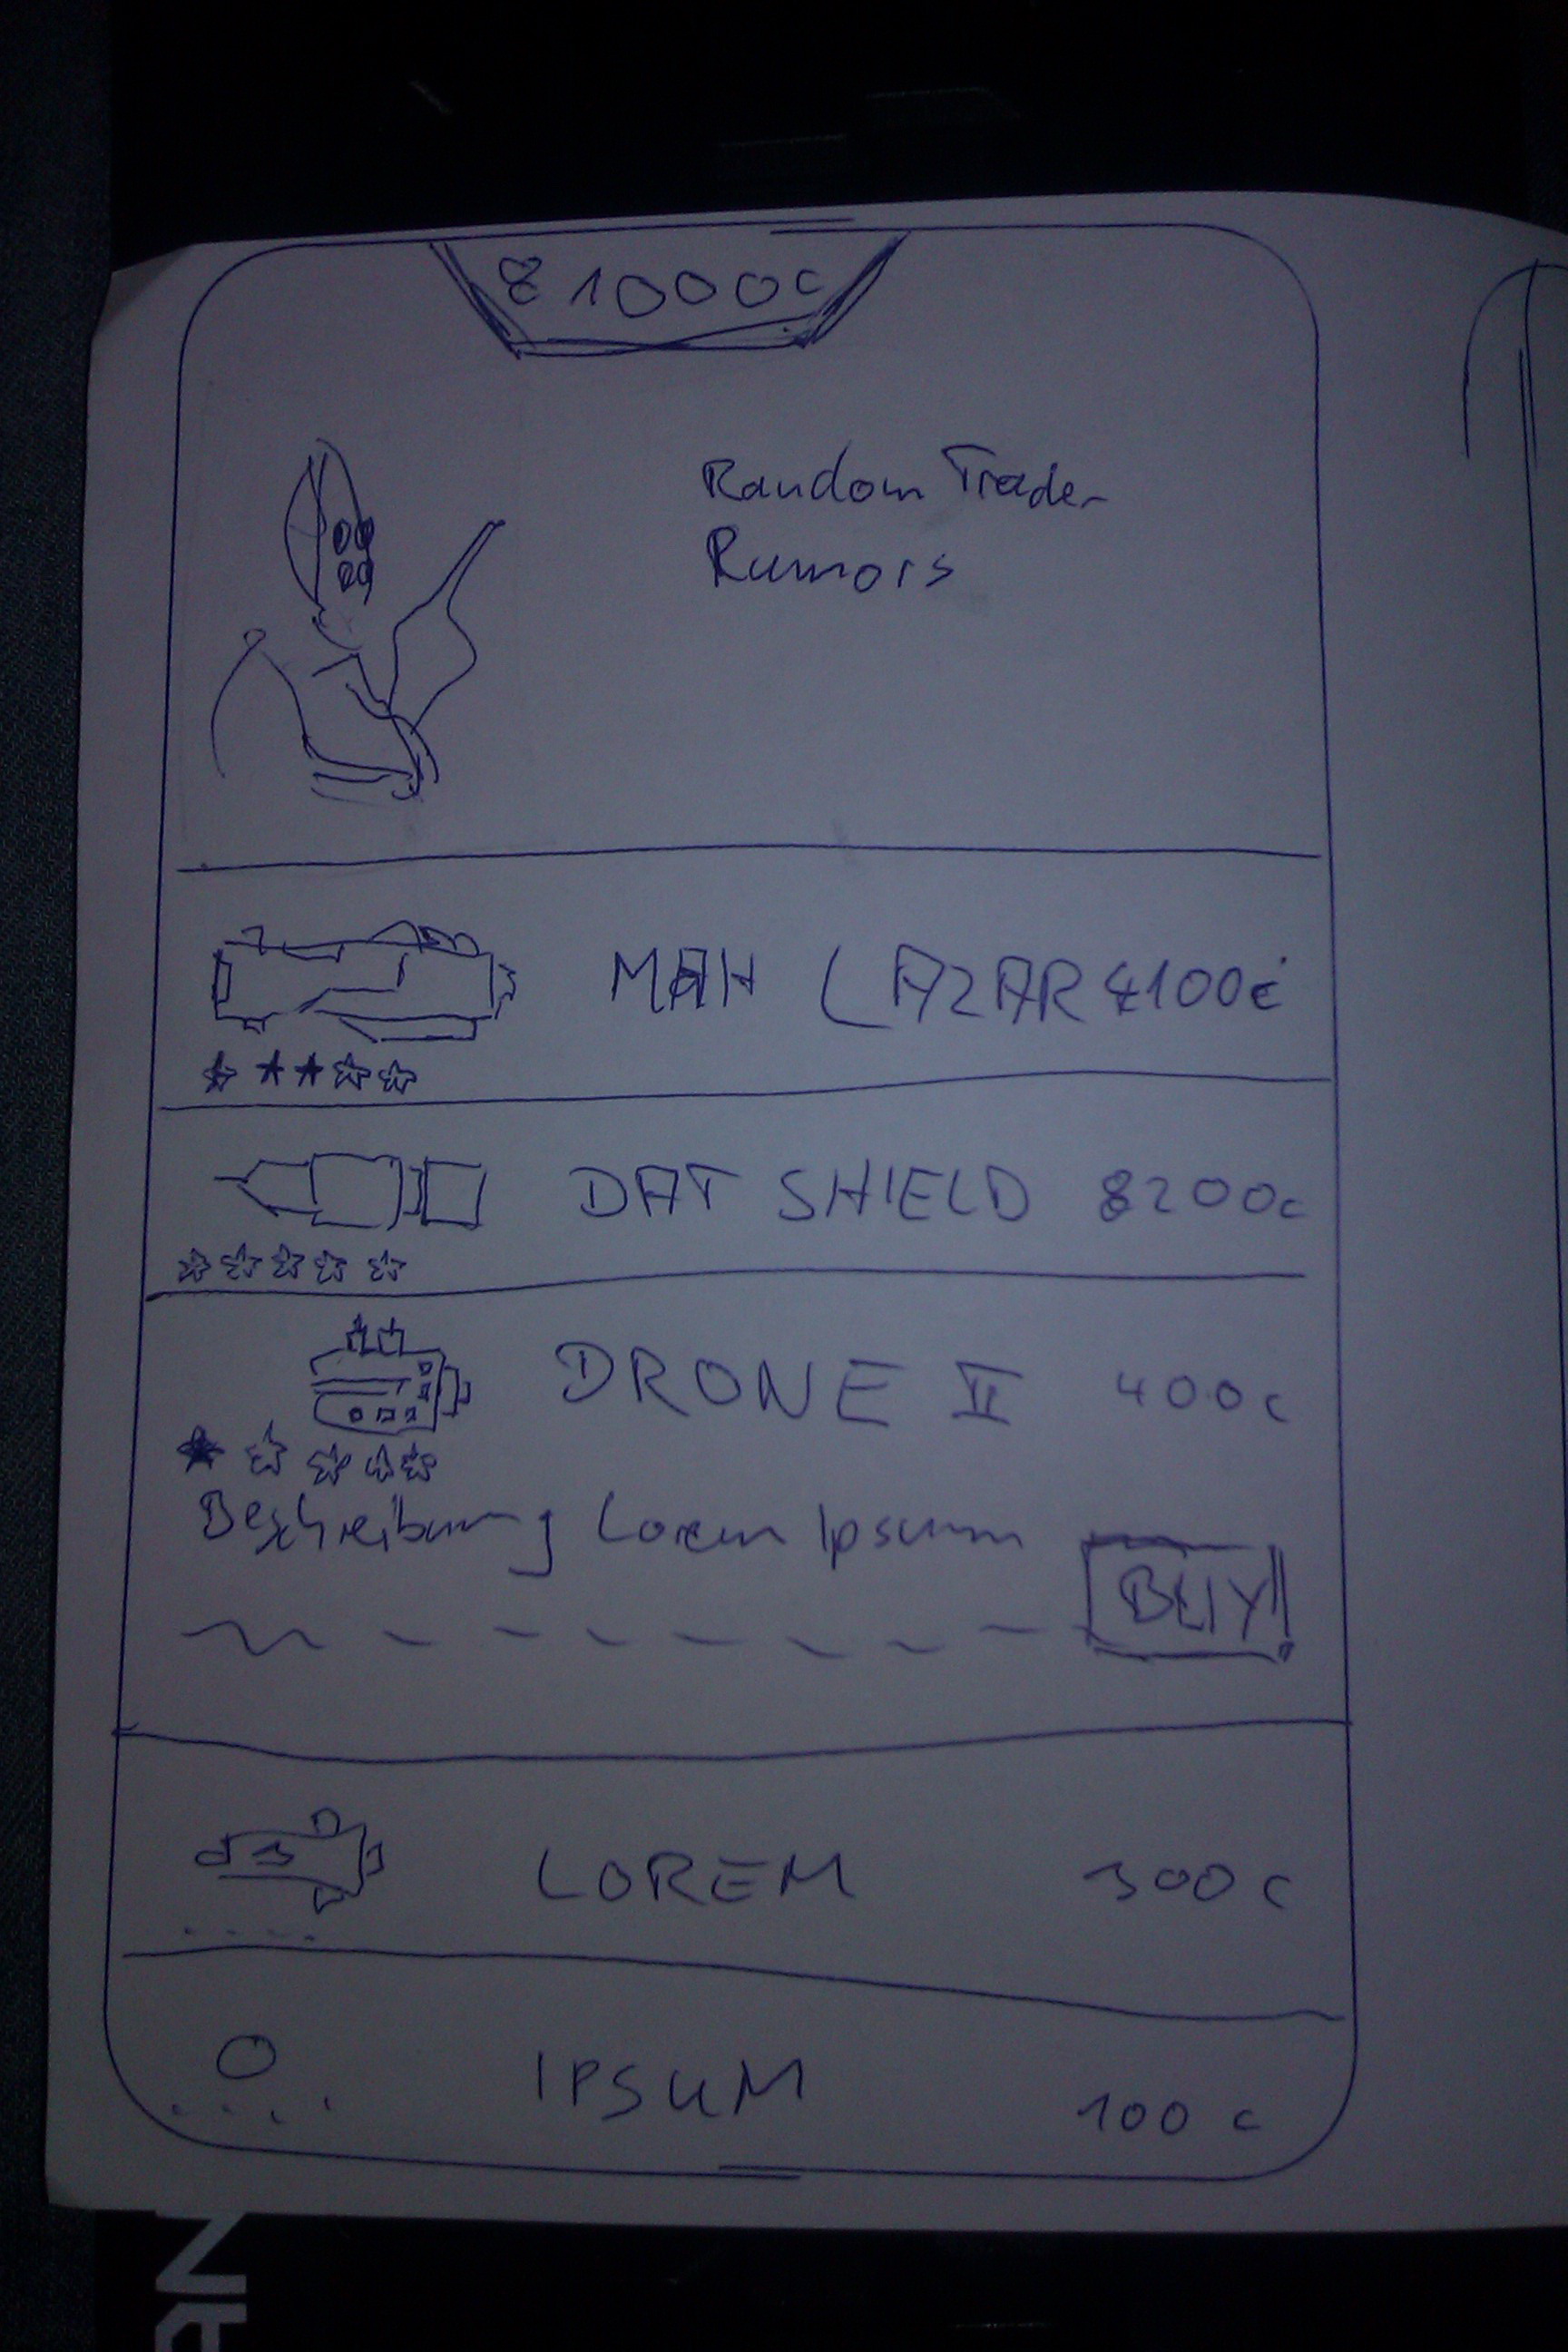 81000c
Random Trader
Rumors
MAH LAZAR 4100c
DAT SHIELD 8200c
DRONE II 400c
Beschreibung Lorem Ipsum
BUY!
LOREM 300c
IPSUM 100c
AN